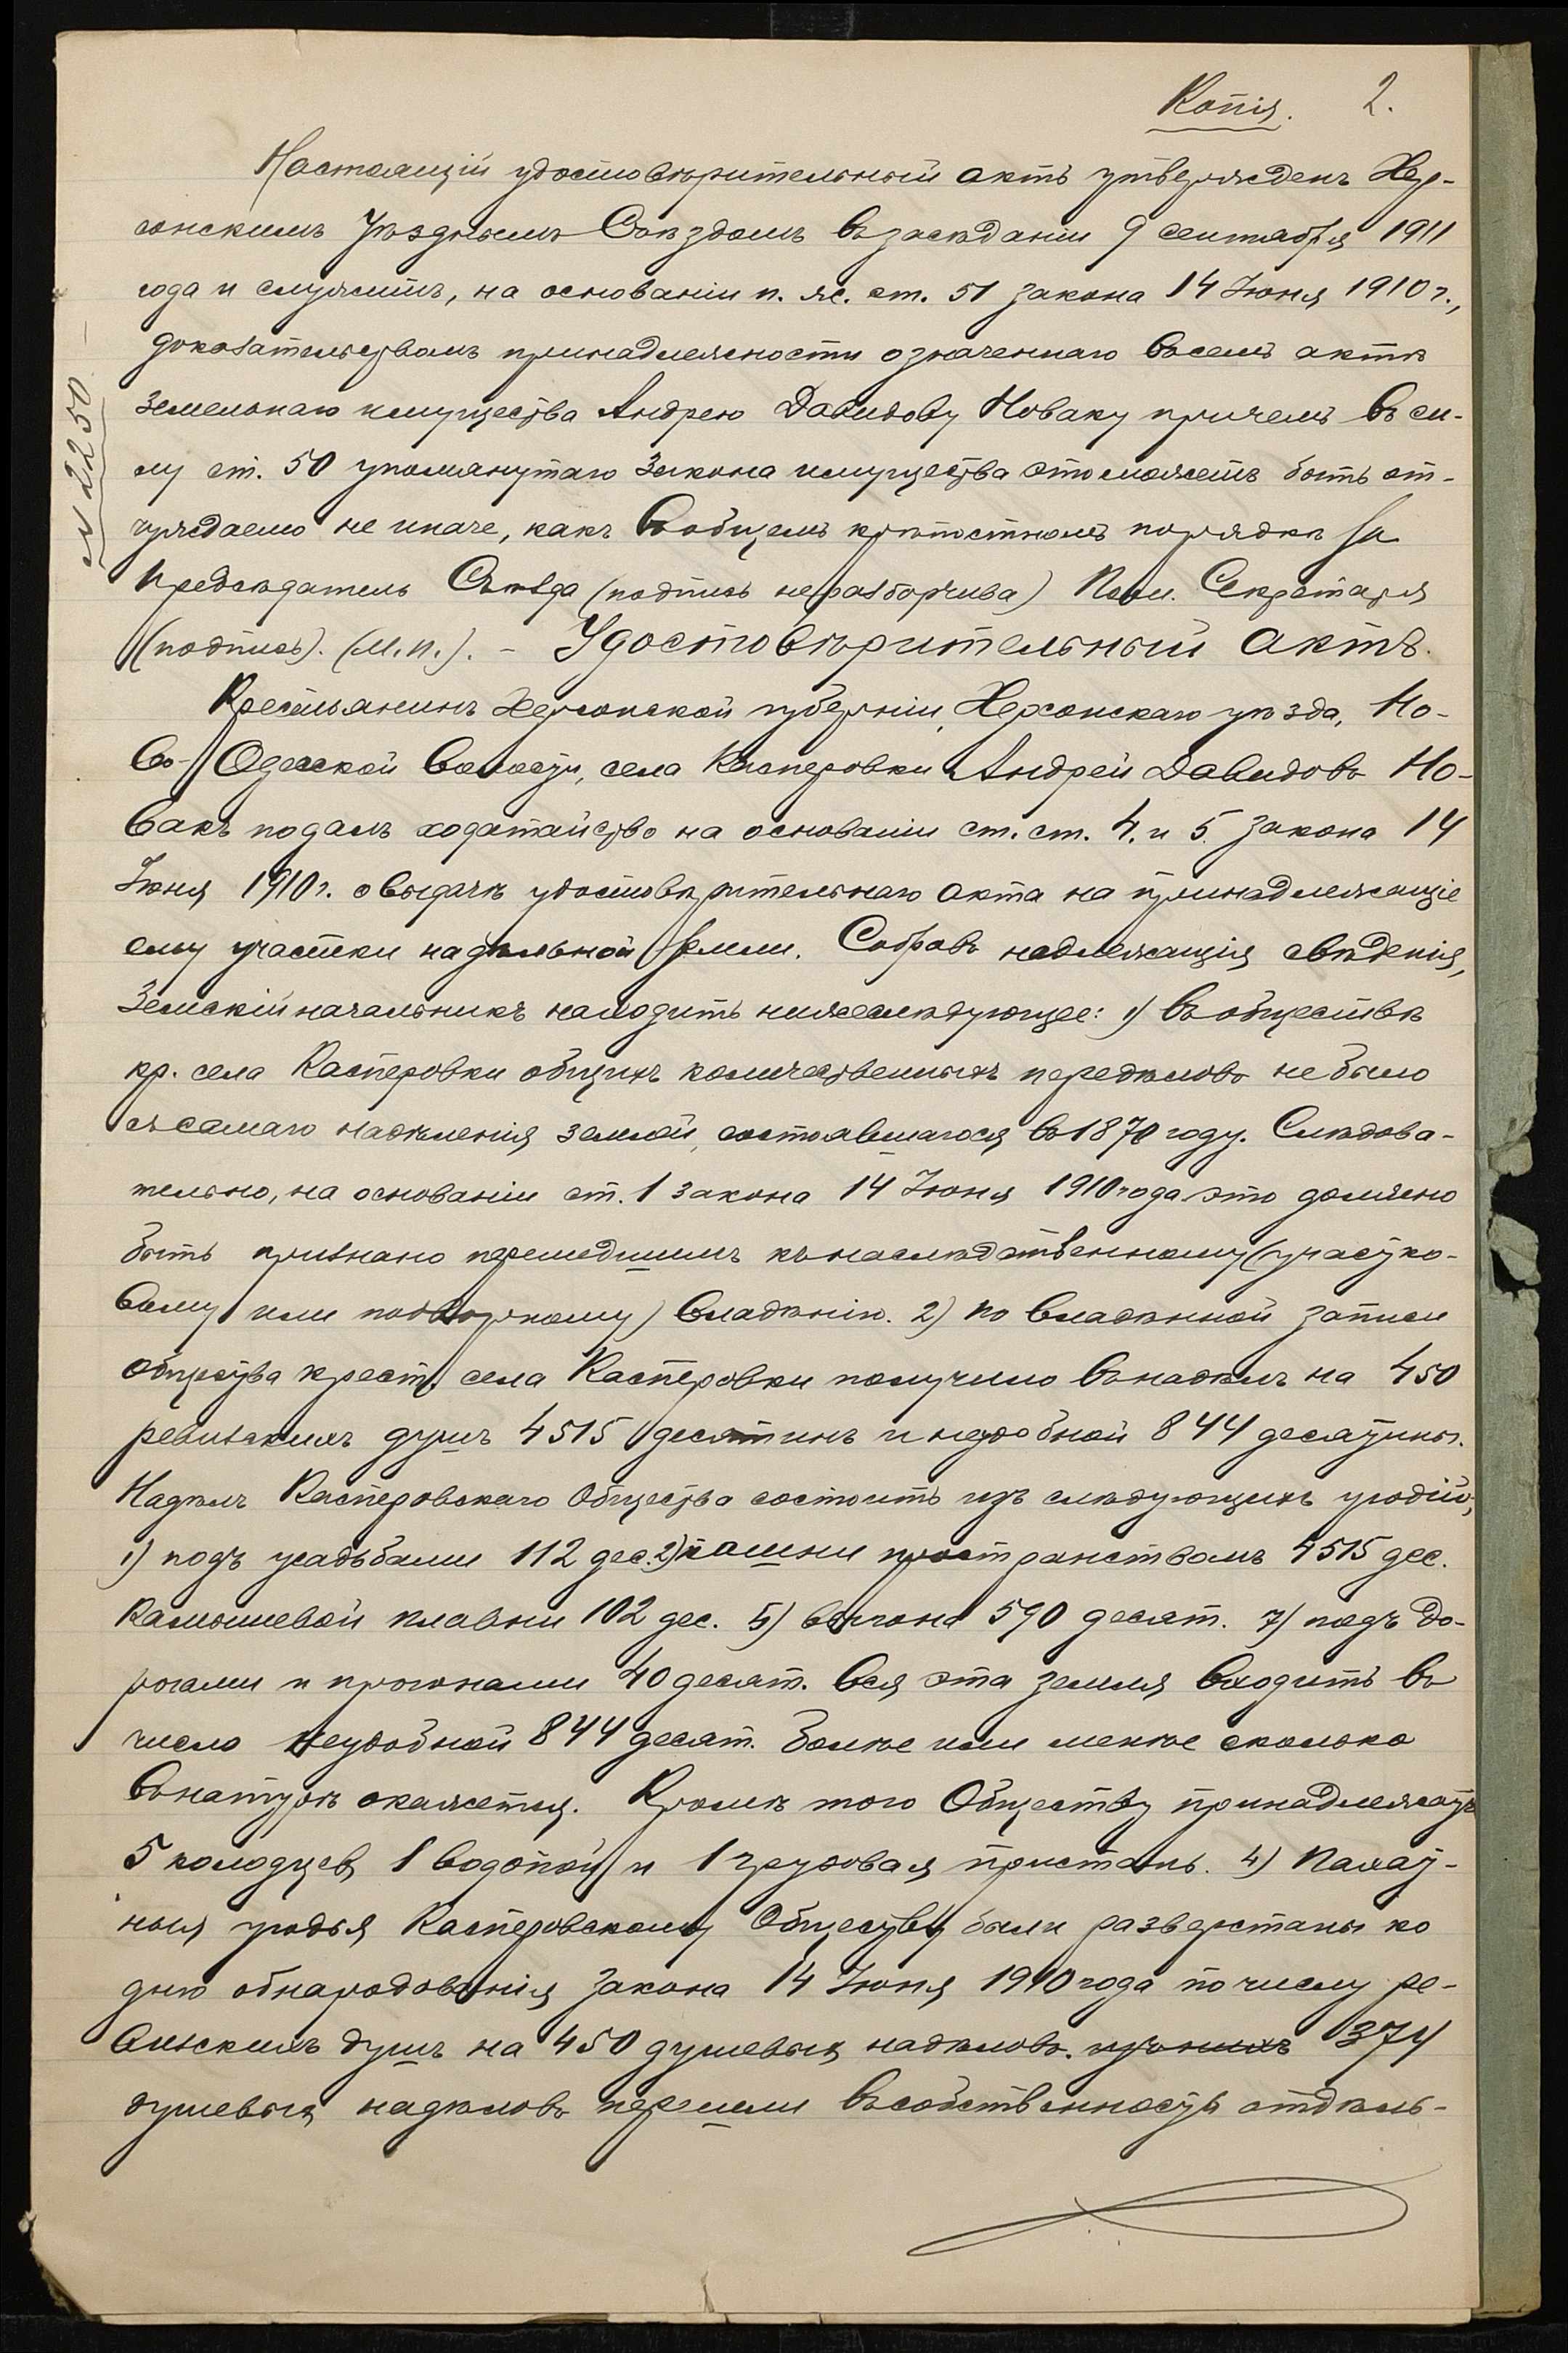 Копія. 2.
№ 2250
Настоящій удостовѣрительный актъ утвержденъ Хер-
сонскимъ Уѣзднымъ Съѣздомъ въ засѣданіи 9 сентября 1911
года и служитъ, на основаніи п. ж. ст. 51 закона 14 Іюня 1910 г.,
доказательствомъ принадлежности означеннаго въ семъ актѣ
земельнаго имущества Андрею Давидову Новаку причемъ въ си-
лу ст. 50 упомянутаго закона имущества это можетъ быть от-
чуждаемо не иначе, какъ въ общемъ крѣпостномъ порядкѣ За
Предсѣдатель Съѣзда (подпись неразборчива) Пом. Секретаря
(подпись). (М.П.). – Удостовѣрительный актъ.
Крестьянинъ Херсонской губерніи, Херсонскаго уѣзда, Но-
во-Одесской волости, села Касперовки Андрей Давидовъ Но-
вакъ подалъ ходатайство на основаніи ст. ст. 4. и 5. закона 14
Іюня 1910 г. о выдачѣ удостовѣрительнаго акта на принадлежащіе
ему участки надѣльной земли. Собравъ надлежащія свѣдѣнія,
Земскій начальникъ находитъ нижеслѣдующее: 1) Въ обществѣ
кр. села Касперовки общихъ количественныхъ передѣловъ не было
съ самаго надѣленія землей, состоявшагося въ 1870 году. Слѣдова-
тельно, на основаніи ст. 1 закона 14 Іюня 1910 года это должно
быть признано перешедшимъ къ наслѣдственному (участко-
вому или подворному) владѣнію. 2) По владѣнной записи
общества крест. села Касперовки получило въ надѣлъ на 450
ревизскихъ душъ 4515 десятинъ и неудобной 844 десятины.
Надѣлъ Касперовскаго Общества состоитъ изъ слѣдующихъ угодій;
1) подъ усадьбами 112 дес. 2) пашни пространствомъ 4515 дес.
камышевой плавни 102 дес. 5) выгона 590 десят. 7) подъ до-
рогами и прогонами 40 десят. Вся эта земля входитъ въ
число неудобной 844 десят. болѣе или менѣе сколько
въ натурѣ окажется. Кромѣ того Обществу принадлежатъ
5 колодцев, 1 водопой и 1 грузовая пристань. 4) Пахат-
ныя угодья Касперовскому Обществу были разверстаны ко
дню обнародованія закона 14 Іюня 1910 года по числу ре-
визскихъ душъ на 450 душевыхъ надѣловъ. изъ нихъ 374
душевыхъ надѣловъ перешли въ собственность отдѣль-